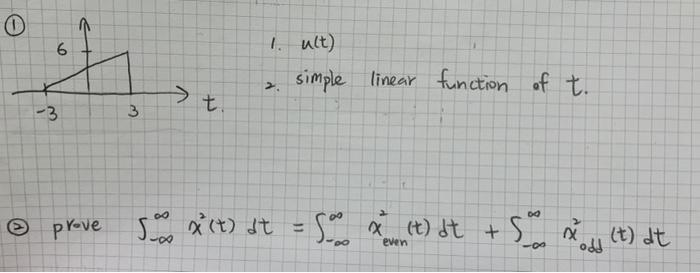 ①
6
-3 3 t.
1. u(t)
2. simple linear function of t.
② prove ∫_{-∞}^{∞} x²(t) dt = ∫_{-∞}^{∞} x²_{even}(t) dt + ∫_{-∞}^{∞} x²_{odd}(t) dt